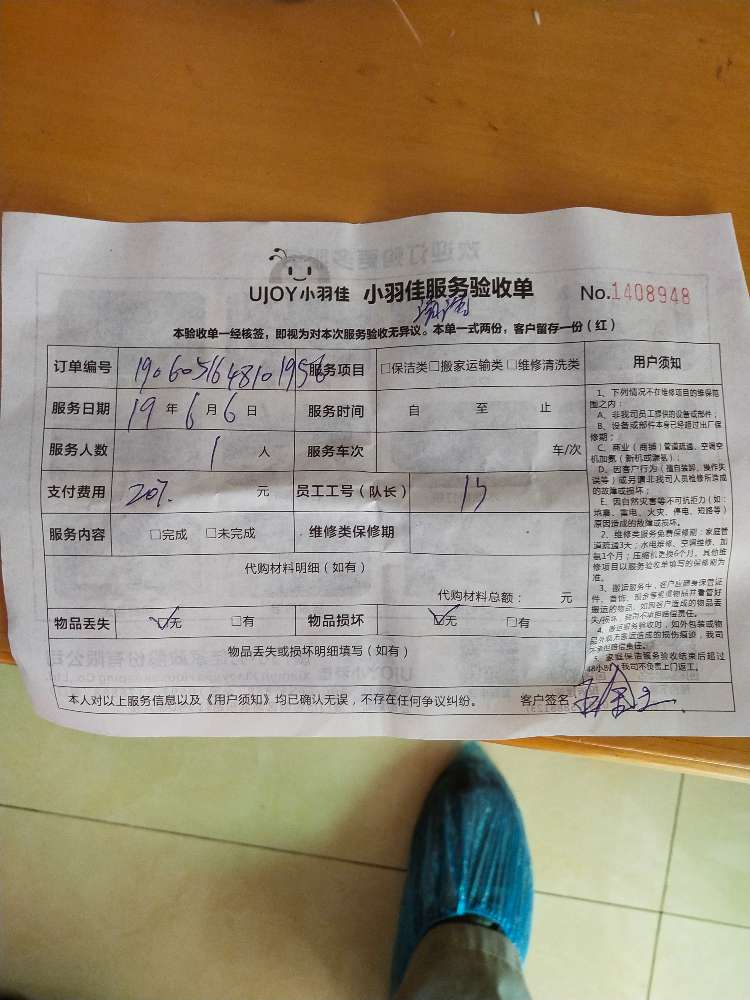 UJOY小羽佳 小羽佳服务验收单 No.1408948
本验收单一经核签，即视为对本次服务验收无异议。本单一式两份，客户留存一份（红）
订单编号 服务项目 □保洁类□搬家运输类□维修清洗类
服务日期 19年6月6日 服务时间 自 至 止
服务人数 1 人 服务车次 车/次
支付费用 元 员工工号（队长）
服务内容 □完成 □未完成 维修类保修期
代购材料明细（如有）
代购材料总额： 元
物品丢失 ☑无 □有 物品损坏 ☑无 □有
物品丢失或损坏明细填写（如有）
本人对以上服务信息以及《用户须知》均已确认无误，不存在任何争议纠纷。 客户签名
用户须知
1、下列情况不在维修项目的维保范
围之内：
A、非我司员工提供的设备或部件；
B、设备或部件本身已经超过出厂保
修期；
C、商业（商铺）管道疏通、空调空
机加氨（新机或漏氨）；
D、因客户行为（擅自装卸、操作失
误等）或另请非我司人员检修所造成
的故障或损坏；
E、因自然灾害等不可抗拒力（如：
地震、雷电、火灾、停电、短路等）
原因造成的故障或损坏。
2、维修类服务免费保修期：家庭管
道疏通3天；水电维修、空调维修、加
氨1个月；压缩机更换6个月。其他维
修项目以服务验收单填写的保修期为
准。
3、搬运服务中，客户应随身保管证
件、首饰、现金等贵重物品并看管好
搬运的物品，如因客户造成的物品丢
失/损坏，我司不承担赔偿责任。
4、搬运服务验收时，如外包装或物
品外观无搬运造成的损伤痕迹，我司
不承担赔偿责任。
5、家庭保洁服务验收结束后超过
48小时，我司不负责上门返工。